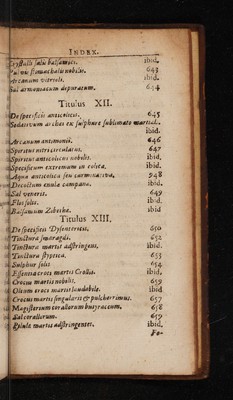 INDEX.
Crystalli salis balsamici. ibid.
Pulvis stomachalis nobilis. 643
Arcanum vitrioli. ibid.
Sal armoniacum depuratum. 644
Titulus XII.
De specificis anticolicis. 645
Sudativum ex sulphure sublimato martial.
ibid.
Arcanum antimonii. 646
Spiritus nitri circulatus. 647
Spiritus anticolicus nobilis. ibid.
Specificum extremum in colica. ibid.
Aqua anticolica seu carminativa. 948
Decoctum enula campana. ibid.
Sal veneris. 649
Flos solis. ibid.
Balsamum Zibetha. ibid
Titulus XIII.
De specificis Dysentericis. 650
Tinctura smaragdi. 652
Tinctura martis adstringens. ibid.
Tinctura styptica. 653
Sulphur solis 654
Essentia croci martis Crollii. ibid.
Crocus martis nobilis. 659
Oleum croci martis laudabile. ibid.
Crocus martis singularis & pulcherrimus. 657
Magisterium corallorum butyraceum. 658
Sal corallorum. 659
Pilula martis adstringentes. ibid.
Fe-